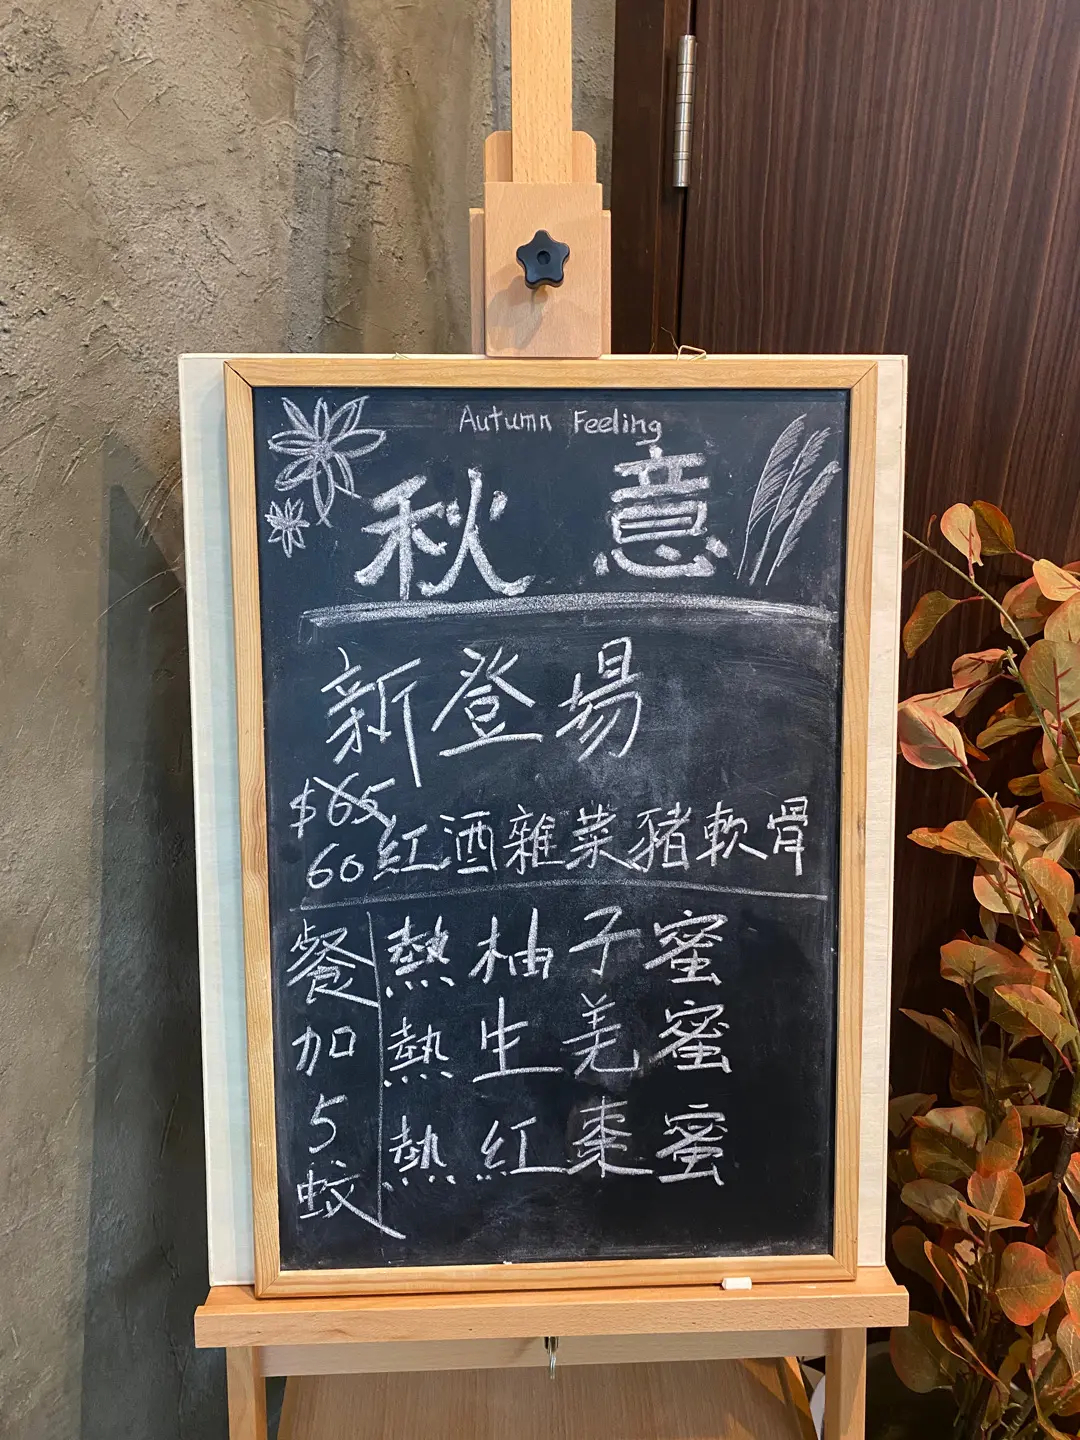 Autumn Feeling
秋意
新登場
$65
60 紅酒雜菜豬軟骨
餐加5蚊
熱柚子蜜
熱生羌蜜
熱紅棗蜜